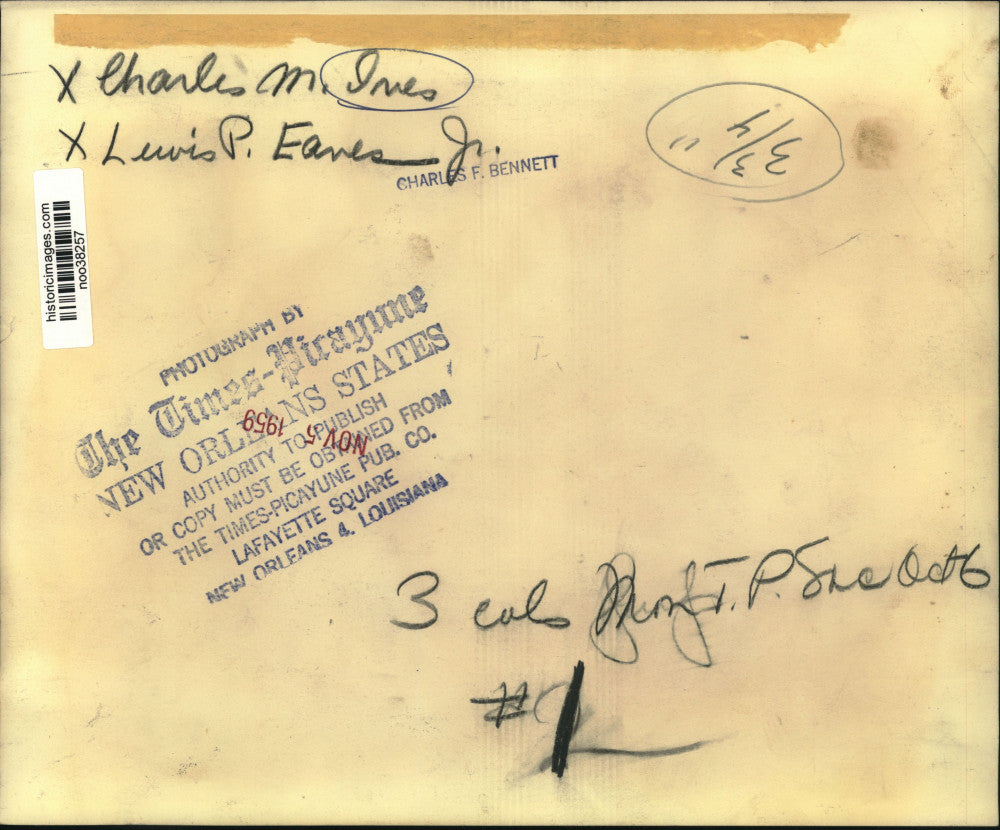 X Charles M. Ives
X Lewis P. Eaves Jr.
CHARLES F. BENNETT
3 3/4 "
historicimages.com
noo38257
PHOTOGRAPH BY
The Times-Picayune
NEW ORLEANS STATES
AUTHORITY TO PUBLISH
OR COPY MUST BE OBTAINED FROM
THE TIMES-PICAYUNE PUB. CO.
LAFAYETTE SQUARE
NEW ORLEANS 4, LOUISIANA
NOV 5 1959
3 cols T.P.
#1